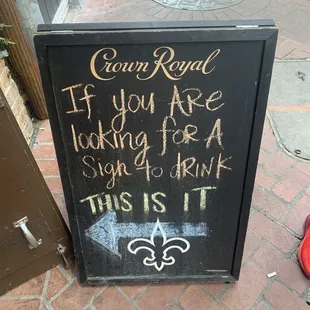 Crown Royal
If you ARe
looking foR A
Sign to dRiNK
THIS IS IT